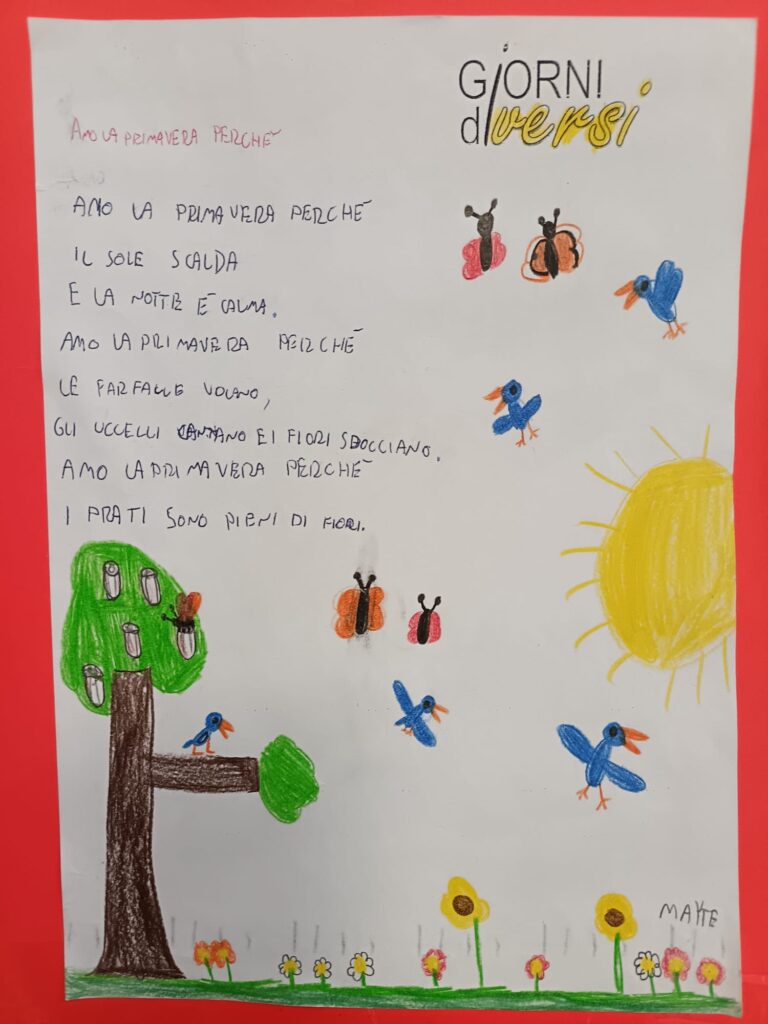 GIORNI
diversi
AMO LA PRIMAVERA PERCHÉ
AMO LA PRIMAVERA PERCHÉ
IL SOLE SCALDA
E LA NOTTE É CALMA.
AMO LA PRIMAVERA PERCHÉ
LE FARFALLE VOLANO,
GLI UCCELLI CANTANO E I FIORI SBOCCIANO.
AMO LA PRIMAVERA PERCHÉ
I PRATI SONO PIENI DI FIORI.
MAYTE